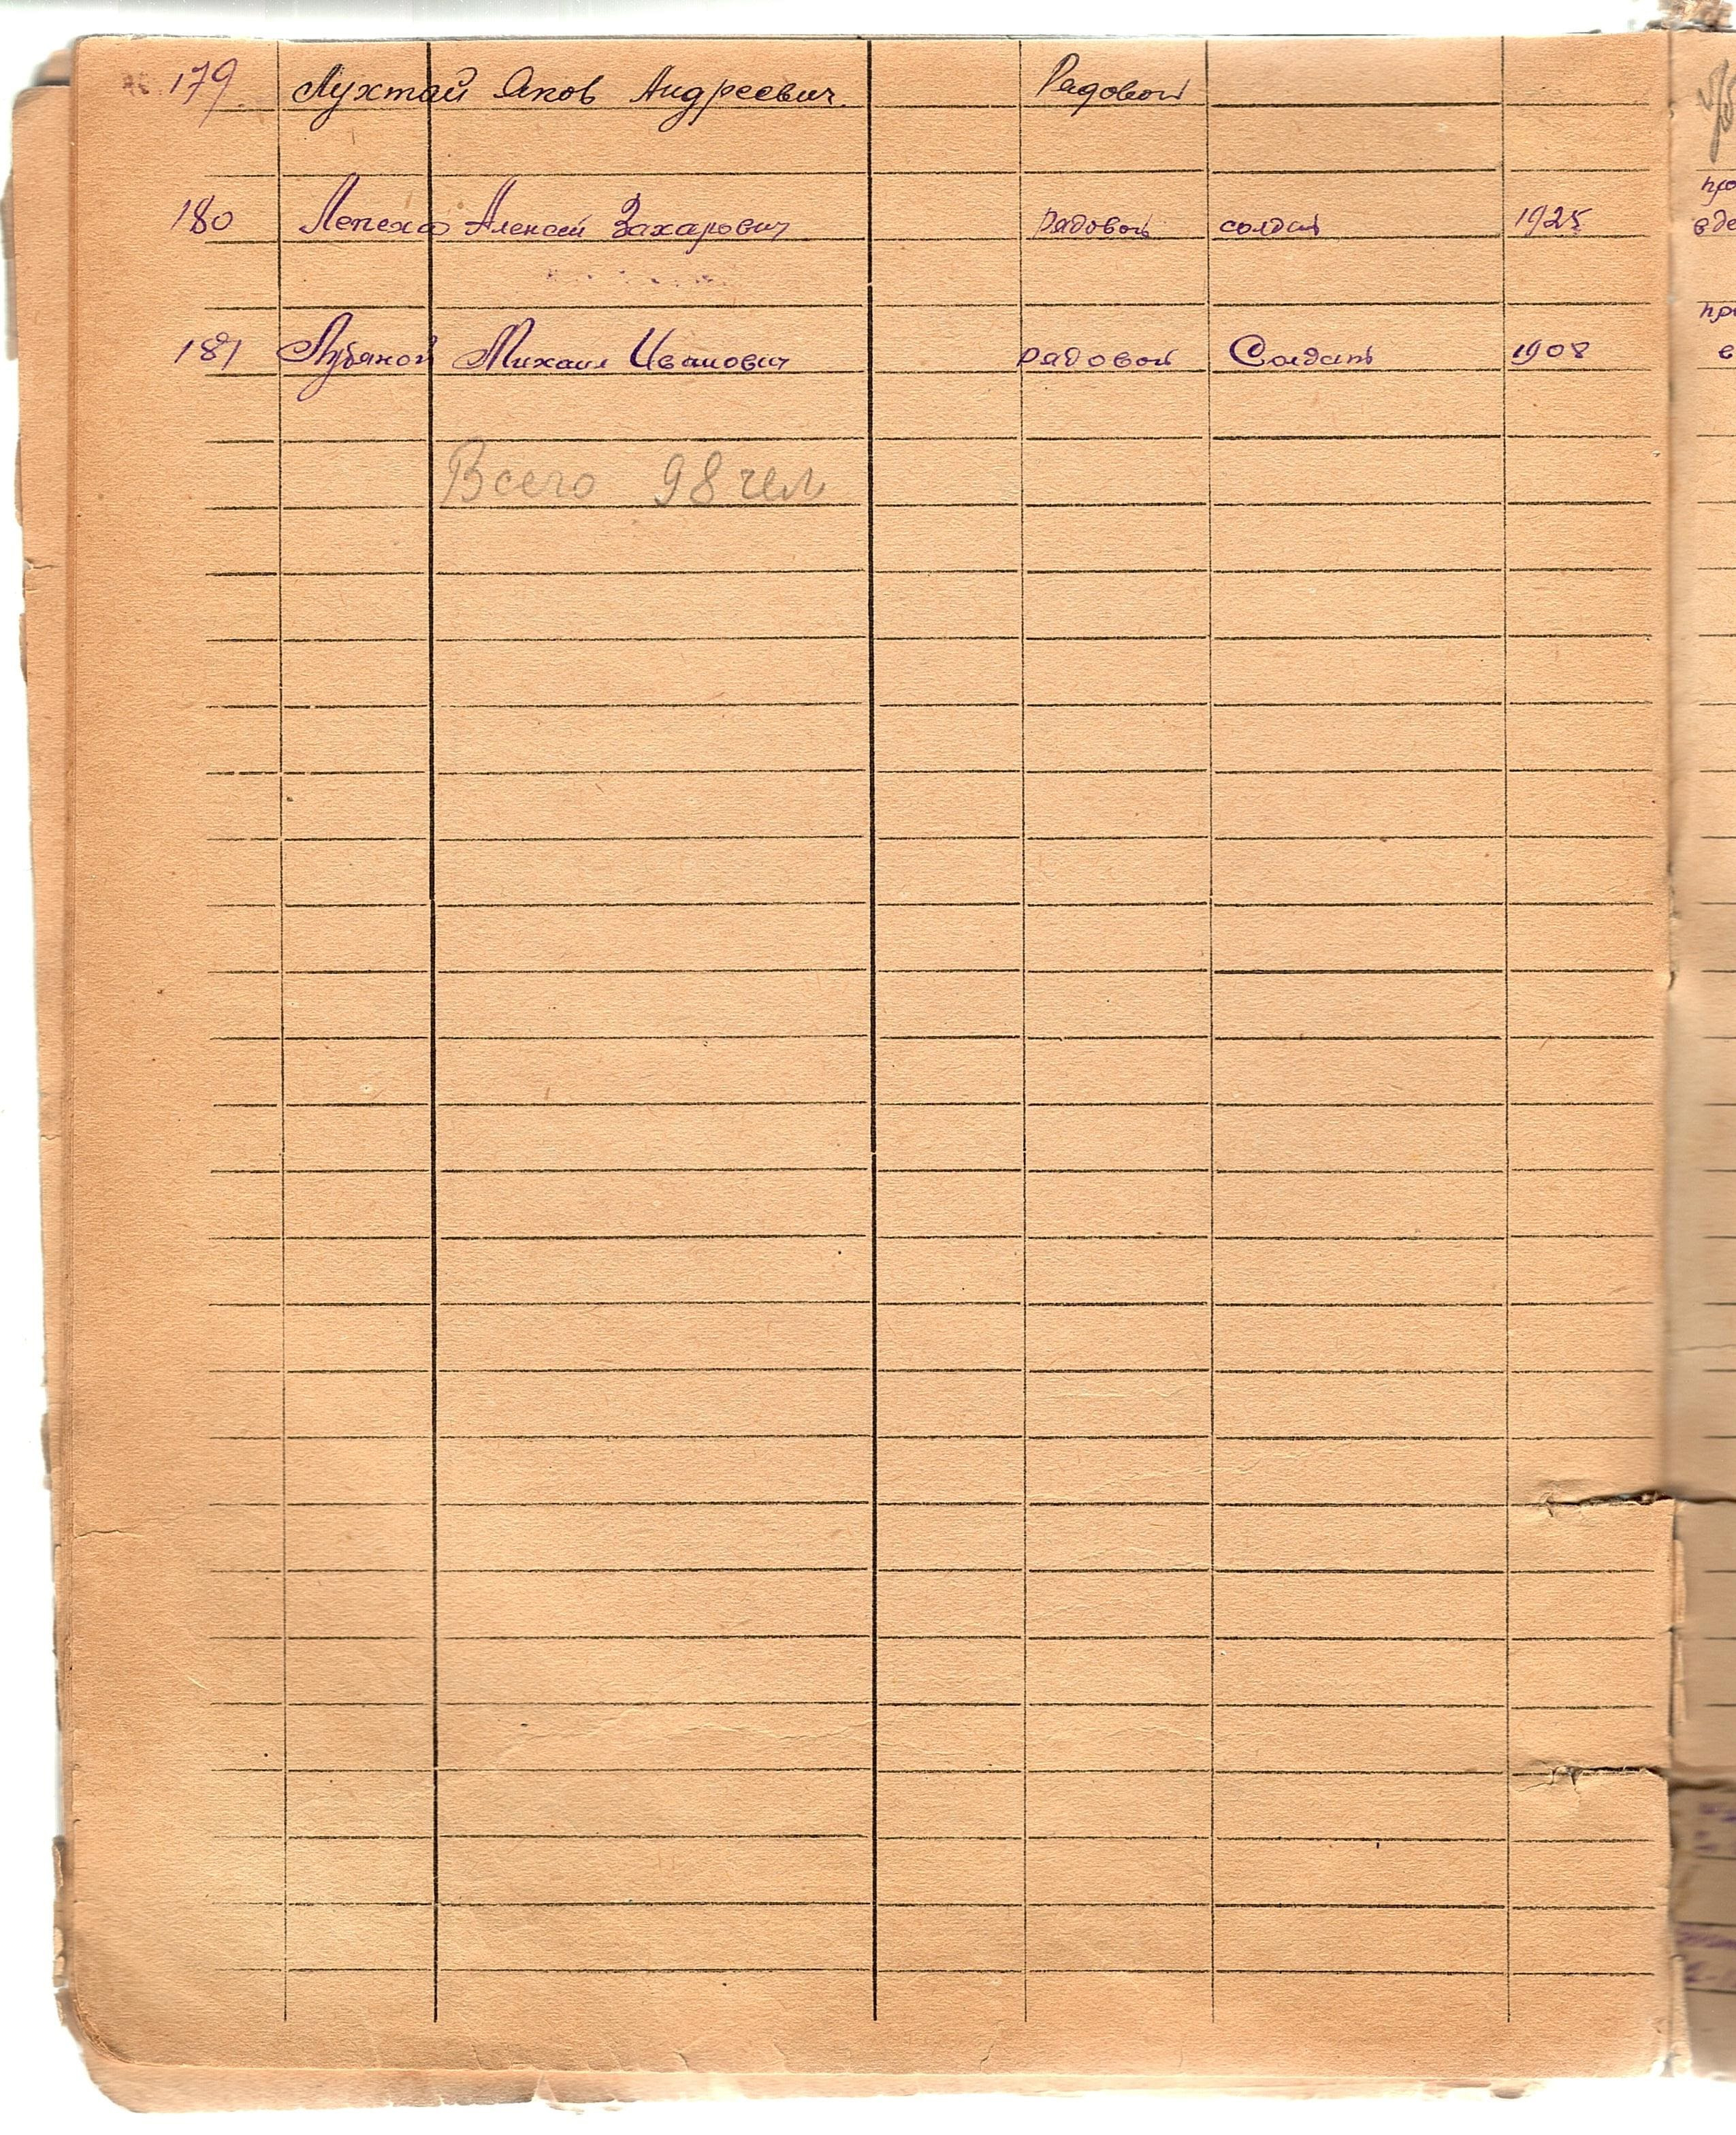 179 Лухтай Яков Андреевич Рядовой
180 Лепеха Алексей Захарович рядовой солдат 1925
181 Михаил Иванович рядовой Солдат 1908
Всего 98 чел